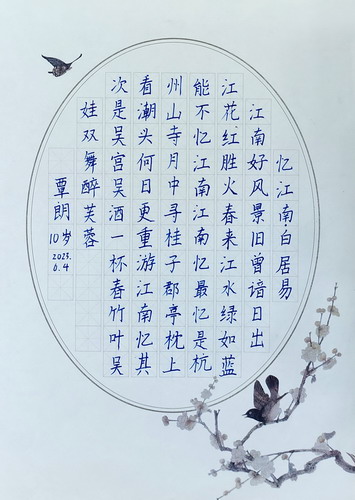 忆江南·白居易
江南好风景旧曾谙日出
江花红胜火春来江水绿如蓝
能不忆江南江南忆最忆是杭
州山寺月中寻桂子郡亭枕上
看潮头何日更重游江南忆其
次是吴宫吴酒一杯春竹叶吴
娃双舞醉芙蓉
覃朗
10岁
2023.
6.4